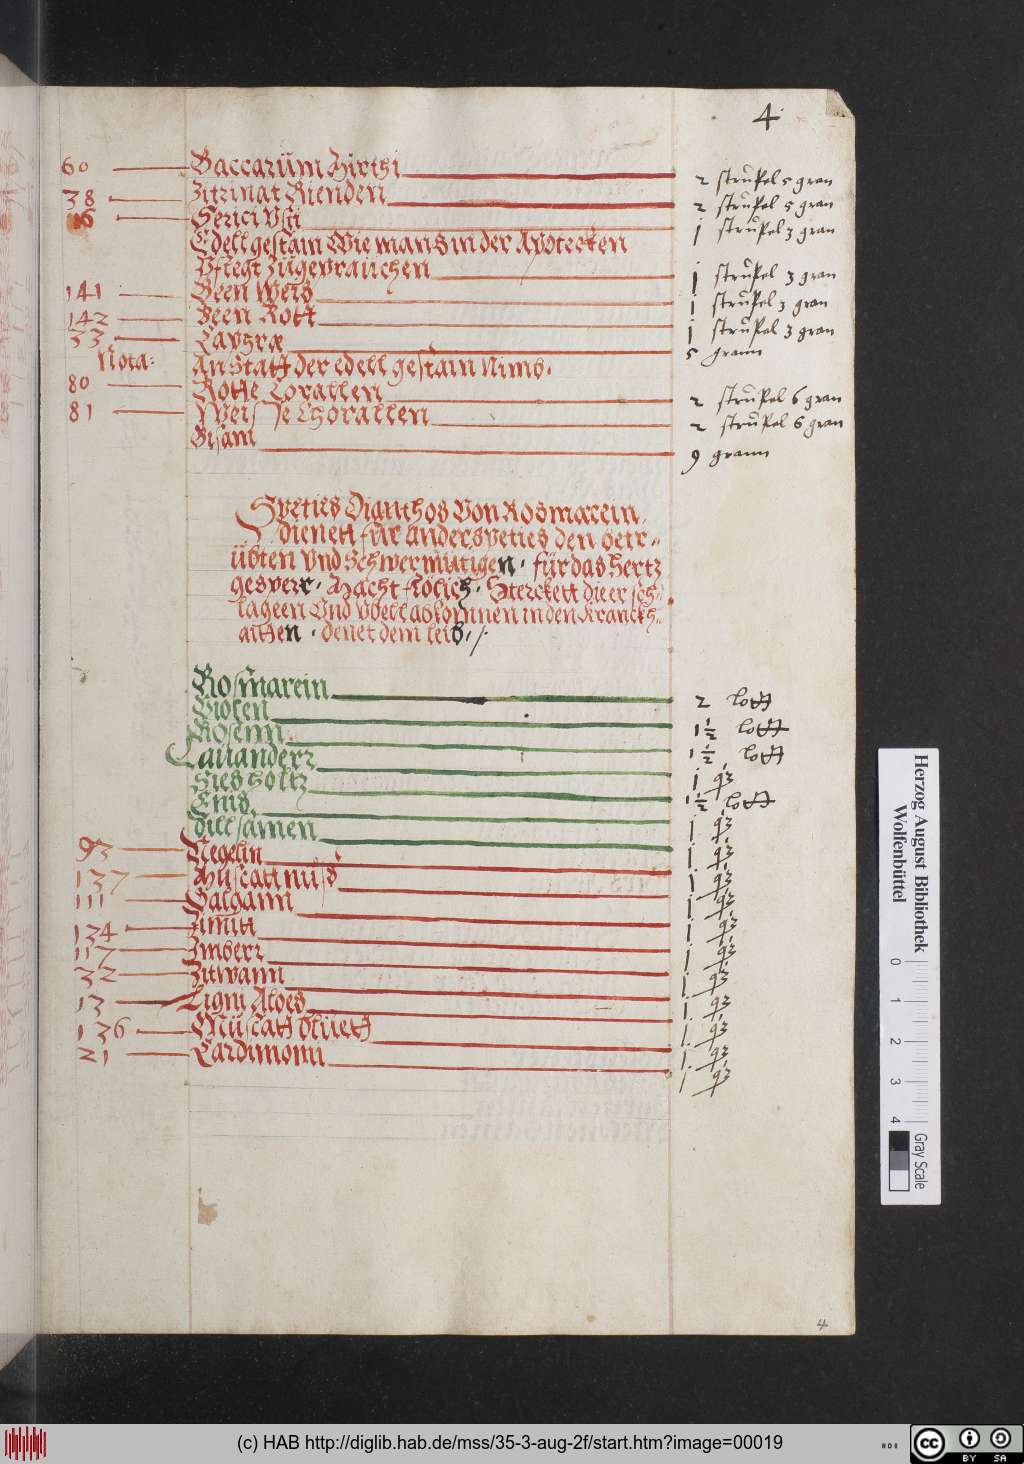 4
60 Baccarum Mirthi 2 strupel 5 gran
38 Zitrinat Rienden 2 strupel 5 gran
16 Serici Usti 1 strupel 3 gran
Edell gestain Wie mans in der Apotecken
Pflegt Zugebrauchen 1 strupel 3 gran
141 Been Weis 1 strupel 3 gran
142 Been Rott 1 strupel 3 gran
33 5 grann
Nota: An Statt der edell gestain Nimb.
80 Rotte Corallen 2 strupel 6 gran
81 Weisse Chorallen 2 strupel 6 gran
Bisam 9 grann
Speties Dianthos Von Rosmarein,
dienett für ander speties den betr-
übten Vnd Schwermütigen. für das Hertz
gesperr. Macht frölich. Sterckett die er sch-
lageen Vnd Vbell abkommen in den Kranckh-
aitten. denet dem leib.
Rosmarein 2 lott
Violen 1½ lott
Rosenn 1½ lott
Lauanderz 1 qz
Siesholtz 1½ lott
Enis 1 qz
Dillsamen 1 qz
93 Negelin 1 qz
137 Muscattnus 1 qz
111 Galgann 1 qz
134 Zimitt 1 qz
117 Imberz 1 qz
32 Zitwann 1 qz
13 Ligni Aloes 1 qz
136 Muscatt bluett 1 qz
21 Cardimomi 1 qz
4
Herzog August Bibliothek
Wolfenbüttel
0 1 2 3 4
Gray Scale
(c) HAB http://diglib.hab.de/mss/35-3-aug-2f/start.htm?image=00019
cc BY SA